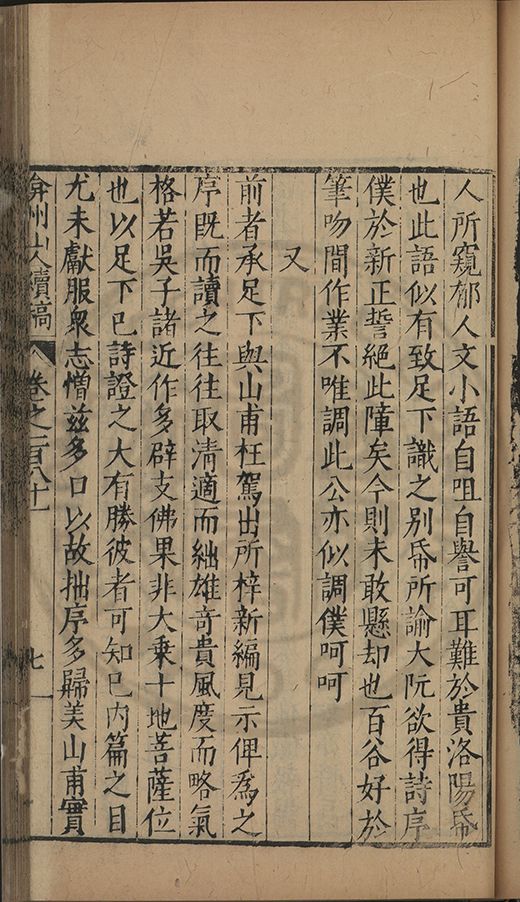 人所窺郁人文小語自咀自譽可耳難於貴洛陽帋
也此語似有致足下識之别帋所諭大阮欲得詩序
僕於新正誓絕此障矣今則未敢懸却也百谷好於
筆吻間作業不唯調此公亦似調僕呵呵
又
前者承足下與山甫枉駕出所梓新編見示俾為之
序既而讀之往往取清適而絀雄奇貴風度而略氣
格若吳子諸近作多辟支佛果非大乗十地菩薩位
也以足下巳詩證之大有勝彼者可知巳内篇之目
尤未獻服衆志憎兹多口以故拙序多歸美山甫實
弇州山人續稿 卷之一百八十一 七